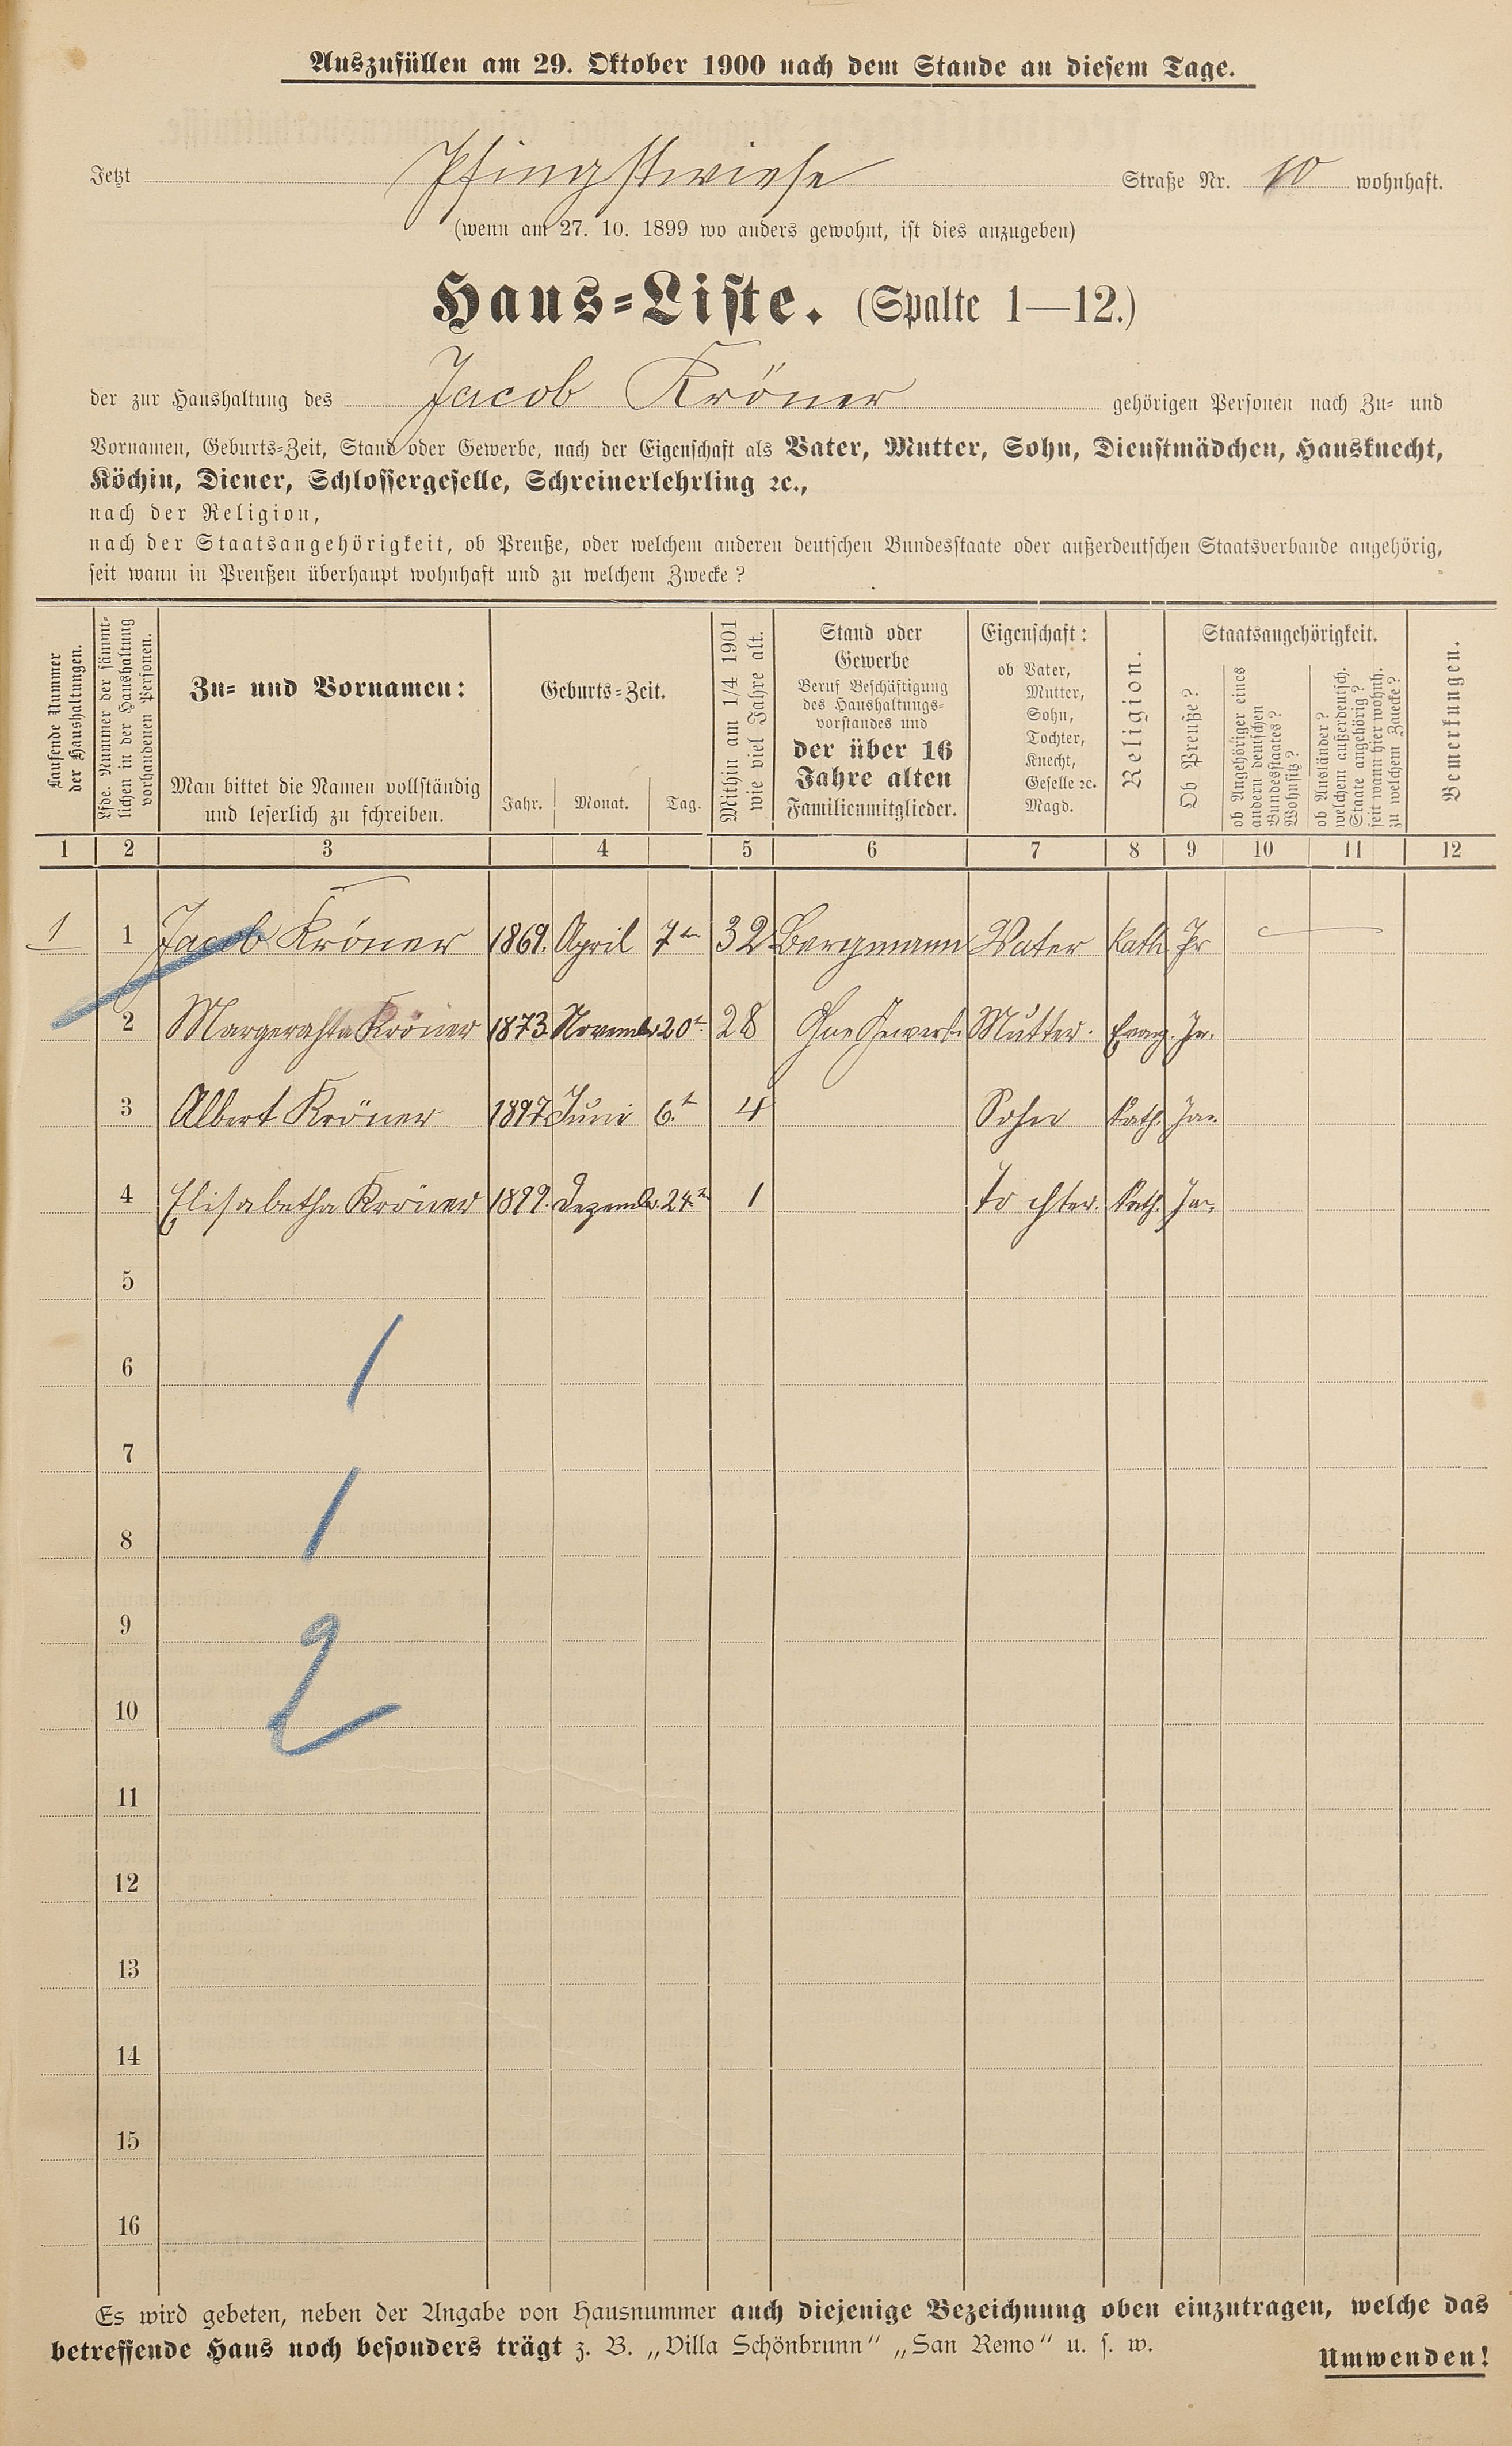 Auszufüllen am 29. Oktober 1900 nach dem Stande an diesem Tage.
Jetzt Pfingstwiese Straße Nr. 10 wohnhaft.
(wenn am 27. 10. 1899 wo anders gewohnt, ist dies anzugeben)
Haus-Liste. (Spalte 1—12.)
der zur Haushaltung des Jacob Kröner gehörigen Personen nach Zu- und
Vornamen, Geburts-Zeit, Stand oder Gewerbe, nach der Eigenschaft als Vater, Mutter, Sohn, Dienstmädchen, Hausknecht,
Köchin, Diener, Schlossergeselle, Schreinerlehrling ꝛc.,
nach der Religion,
nach der Staatsangehörigkeit, ob Preuße, oder welchem anderen deutschen Bundesstaate oder außerdeutschen Staatsverbande angehörig,
seit wann in Preußen überhaupt wohnhaft und zu welchem Zwecke?
Laufende Nummer
der Haushaltungen.
Lfde. Nummer der sämmt-
lichen in der Haushaltung
vorhandenen Personen.
Zu- und Vornamen:
Man bittet die Namen vollständig
und leserlich zu schreiben.
Geburts-Zeit.
Jahr. Monat. Tag.
Mithin am 1/4 1901
wie viel Jahre alt.
Stand oder
Gewerbe
Beruf Beschäftigung
des Haushaltungs-
vorstandes und
der über 16
Jahre alten
Familienmitglieder.
Eigenschaft:
ob Vater,
Mutter,
Sohn,
Tochter,
Knecht,
Geselle ꝛc.
Magd.
Religion.
Staatsangehörigkeit.
Ob Preuße?
ob Angehöriger eines
andern deutschen
Bundesstaates?
Wohnsitz?
ob Ausländer?
welchem außerdeutsch.
Staate angehörig?
seit wann hier wohnh.
zu welchem Zwecke?
Bemerkungen.
1 2 3 4 5 6 7 8 9 10 11 12
1 1 Jacob Kröner 1869. April 7ten 32 Bergmann Vater Kath Pr
2 Margerahta Kröner 1873 Novemb. 20t 28 Ohne Gewerb. Mutter. Evang. Ja.
3 Albert Kröner 1897 Juni 6.t 4 Sohn Kath. Ja.
4 Elisabetha Kröner 1899. Dezemb. 24.t 1 Tochter. Kath. Ja.
5
6
1
7
8
1
9
10
2
11
12
13
14
15
16
Es wird gebeten, neben der Angabe von Hausnummer auch diejenige Bezeichnung oben einzutragen, welche das
betreffende Haus noch besonders trägt z. B. „Villa Schönbrunn“ „San Remo“ u. s. w.
Umwenden!